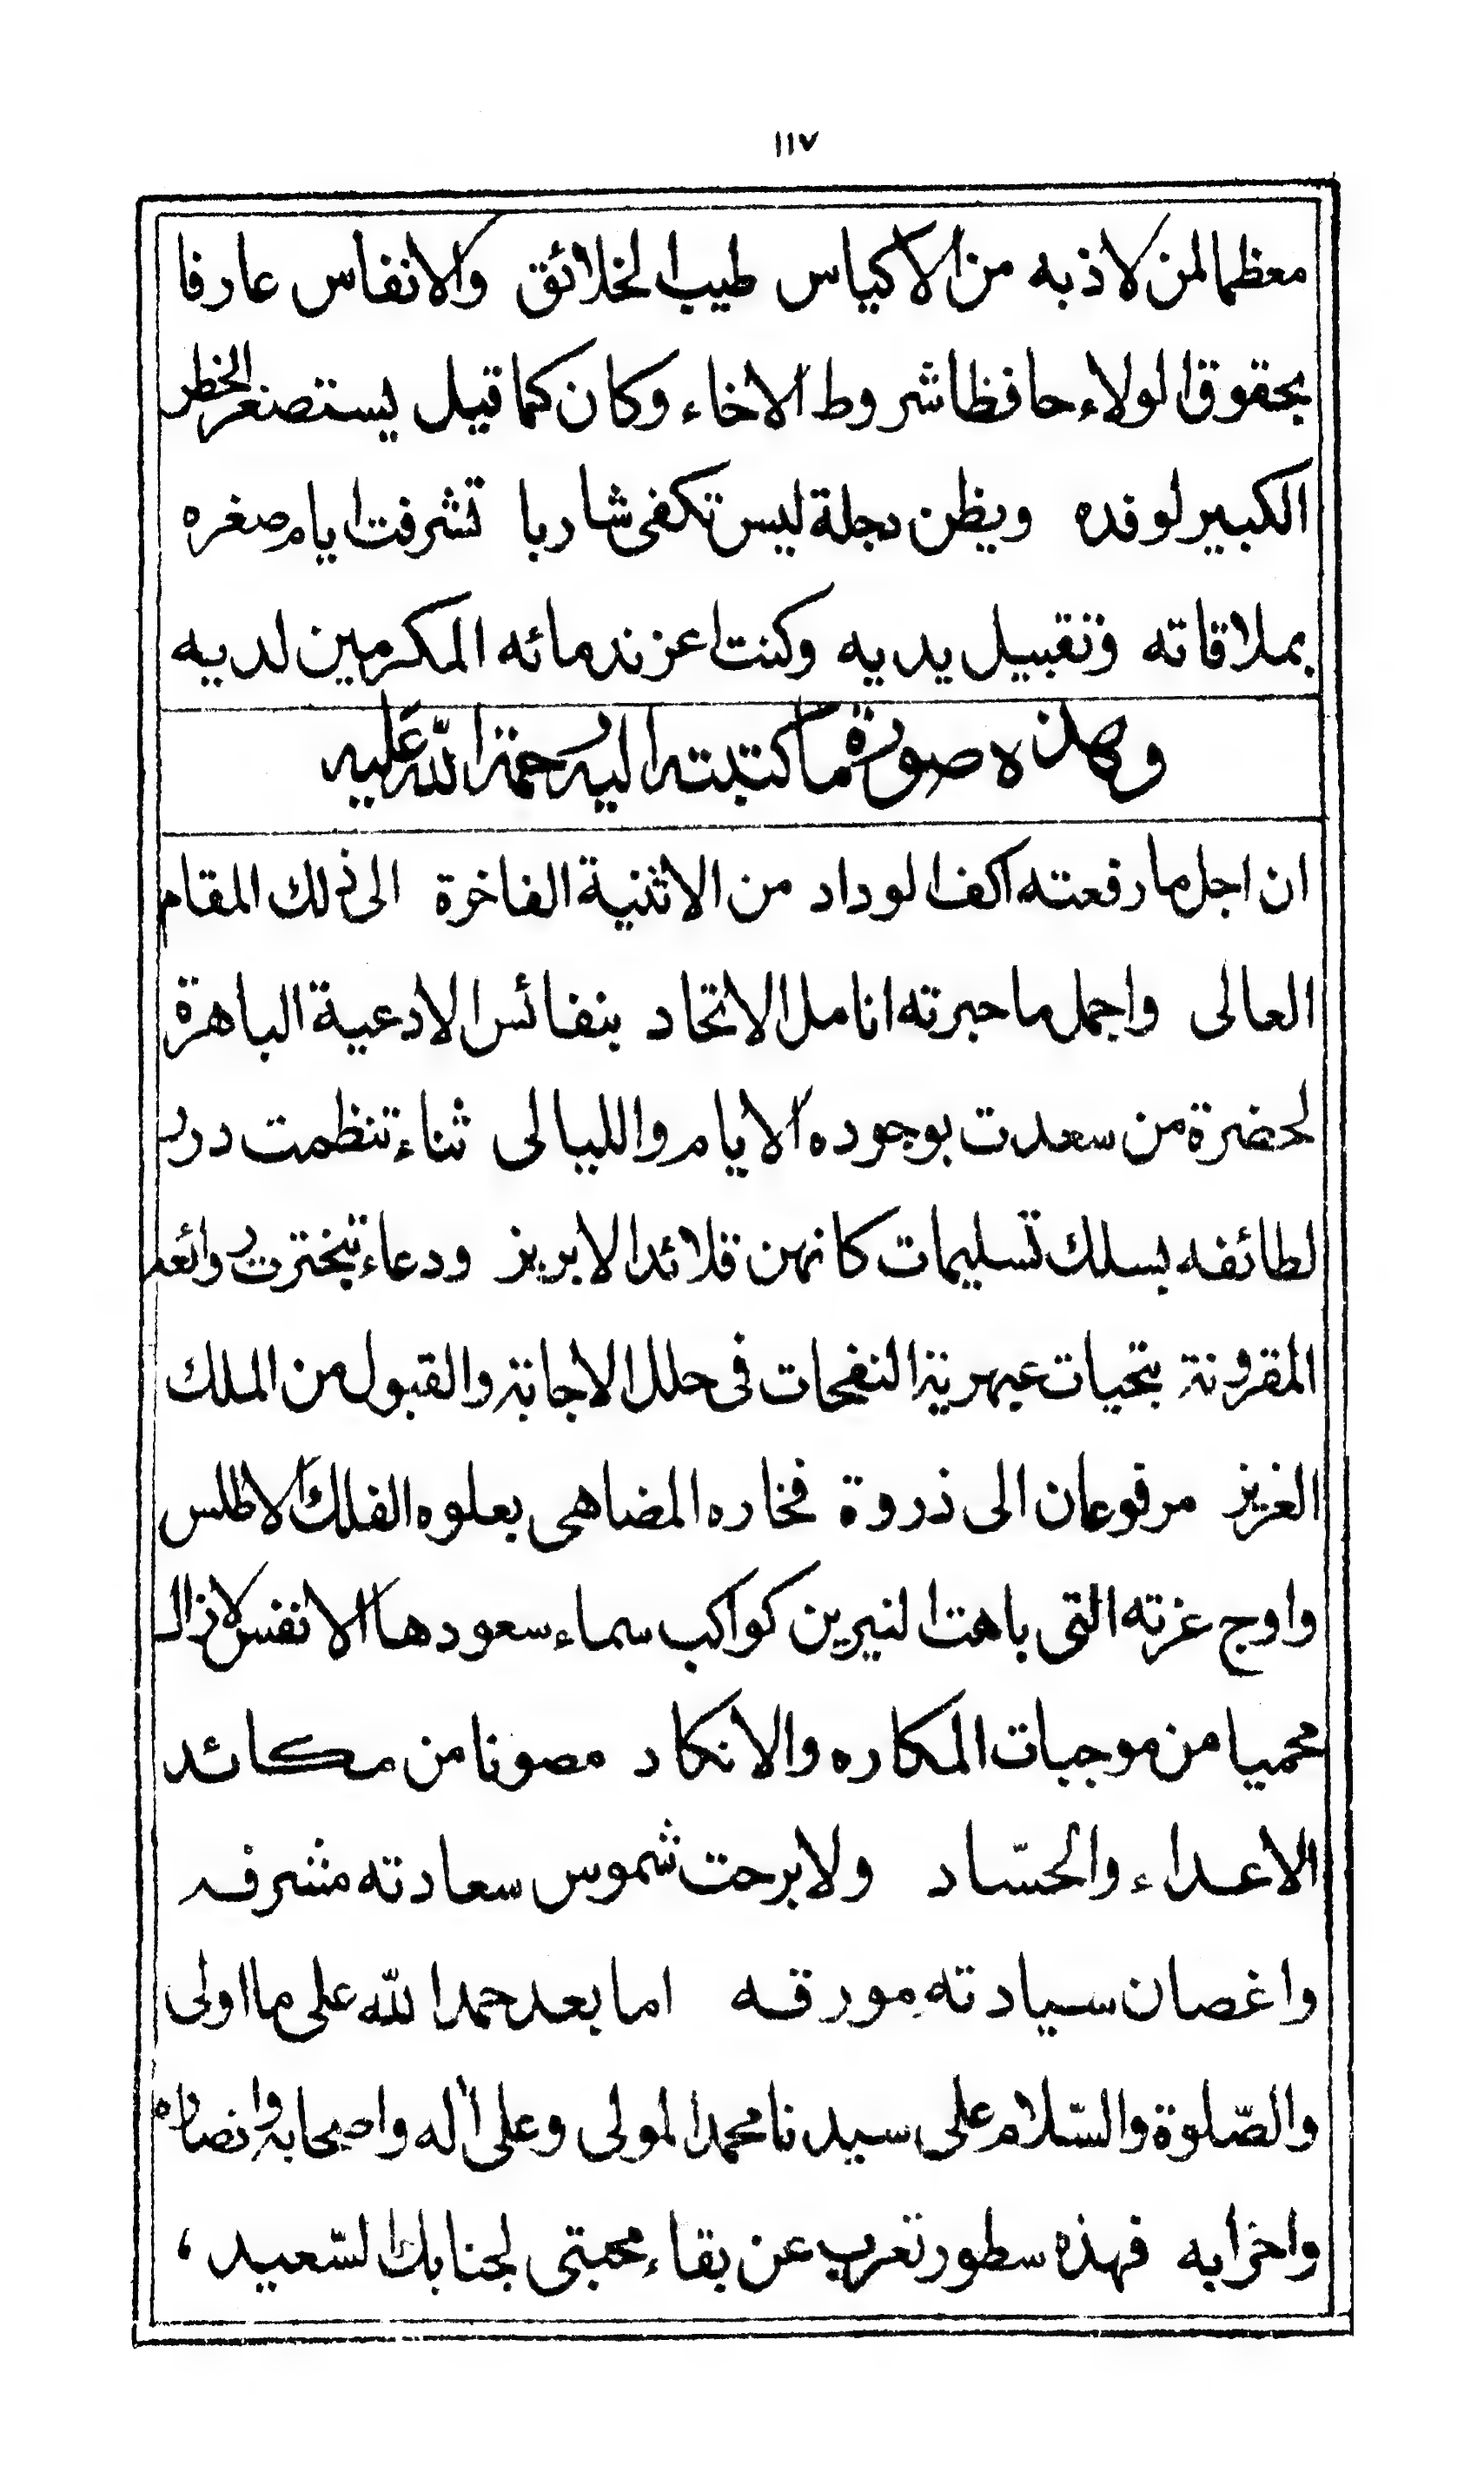 ١١٧
معظما لمن لاذ به من الاكياس طيب الخلائق والانفاس عارفا
بحقوق الولاء حافظا شروط الاخاء وكان كما قيل يستصغر الخطر
الكبير لوفده ويظن دجلة ليس تكفى شاربا تشرفت ايام صغره
بملاقاته وتقبيل يديه وكنت اعز ندمائه المكرمين لديه
وهذه صورة ما كتبته اليه رحمة الله عليه
ان اجل ما رفعته اكف الوداد من الاثنية الفاخرة الى ذلك المقام
العالى واجمل ما حبرته انامل الاتحاد بنفائس الادعية الباهرة
لحضرة من سعدت بوجوده الايام والليالى ثناء تنظمت درر
لطائفه بسلك تسليمات كانهن قلائد الابريز ودعاء تبخترت روائعه
المقرونة بتحيات عبهرية النفحات فى حلل الاجابة والقبول من الملك
العزيز مرفوعان الى ذروة فخاره المضاهى بعلوه الفلك الاطلس
واوج عزته التى باهت النيرين كواكب سماء سعودها الانفس لازال
محميا من موجبات المكاره والانكاد مصونا من مكائد
الاعداء والحسّاد ولا برحت شموس سعادته مشرفه
واغصان سيادته مورقه اما بعد حمدا للّه على ما اولى
والصّلوة والسّلام على سيدنا محمد المولى وعلى اله واصحابه وانصاره
واخزابه فهذه سطور تعرب عن بقاء محبتى لجنابك السّعيد ،